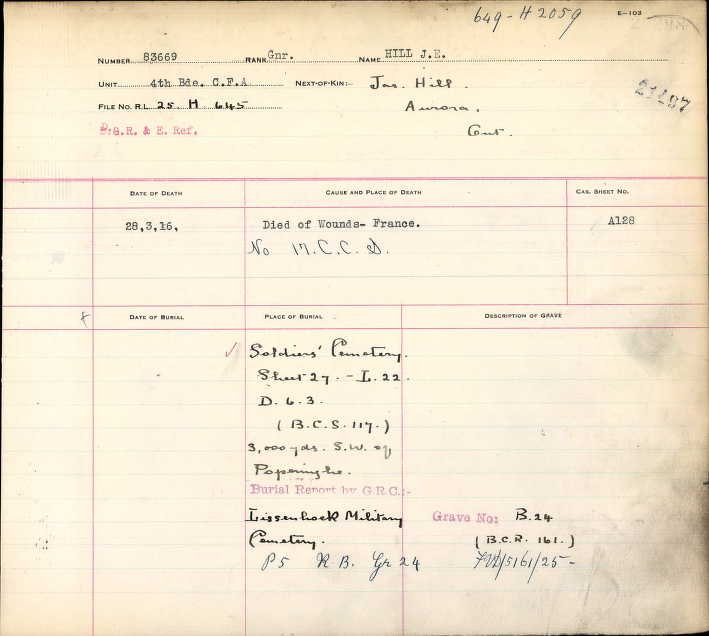 649-H 2059
E-103
NUMBER 83669 RANK Gnr. NAME HILL J.E.
UNIT 4th Bde. C.F.A NEXT-OF-KIN:- Jas. Hill.
FILE NO. R.L 25 H 645 Aurora.
& E. Ref. Ont.
DATE OF DEATH CAUSE AND PLACE OF DEATH CAS. SHEET NO.
28,3,16, Died of Wounds- France. A128
No 17. C. C. S.
DATE OF BURIAL PLACE OF BURIAL DESCRIPTION OF GRAVE
Soldiers' Cemetery.
Sheet 27. - L. 22.
D. 6. 3.
( B.C.S. 117. )
3,000 yds. S.W. of
Poperinghe.
Burial Report by G.R.C.:-
Lissenhoek Military Grave No: B.24
Cemetery. ( B.C.R. 161. )
P5 R B. Gr 24 /5161/25-